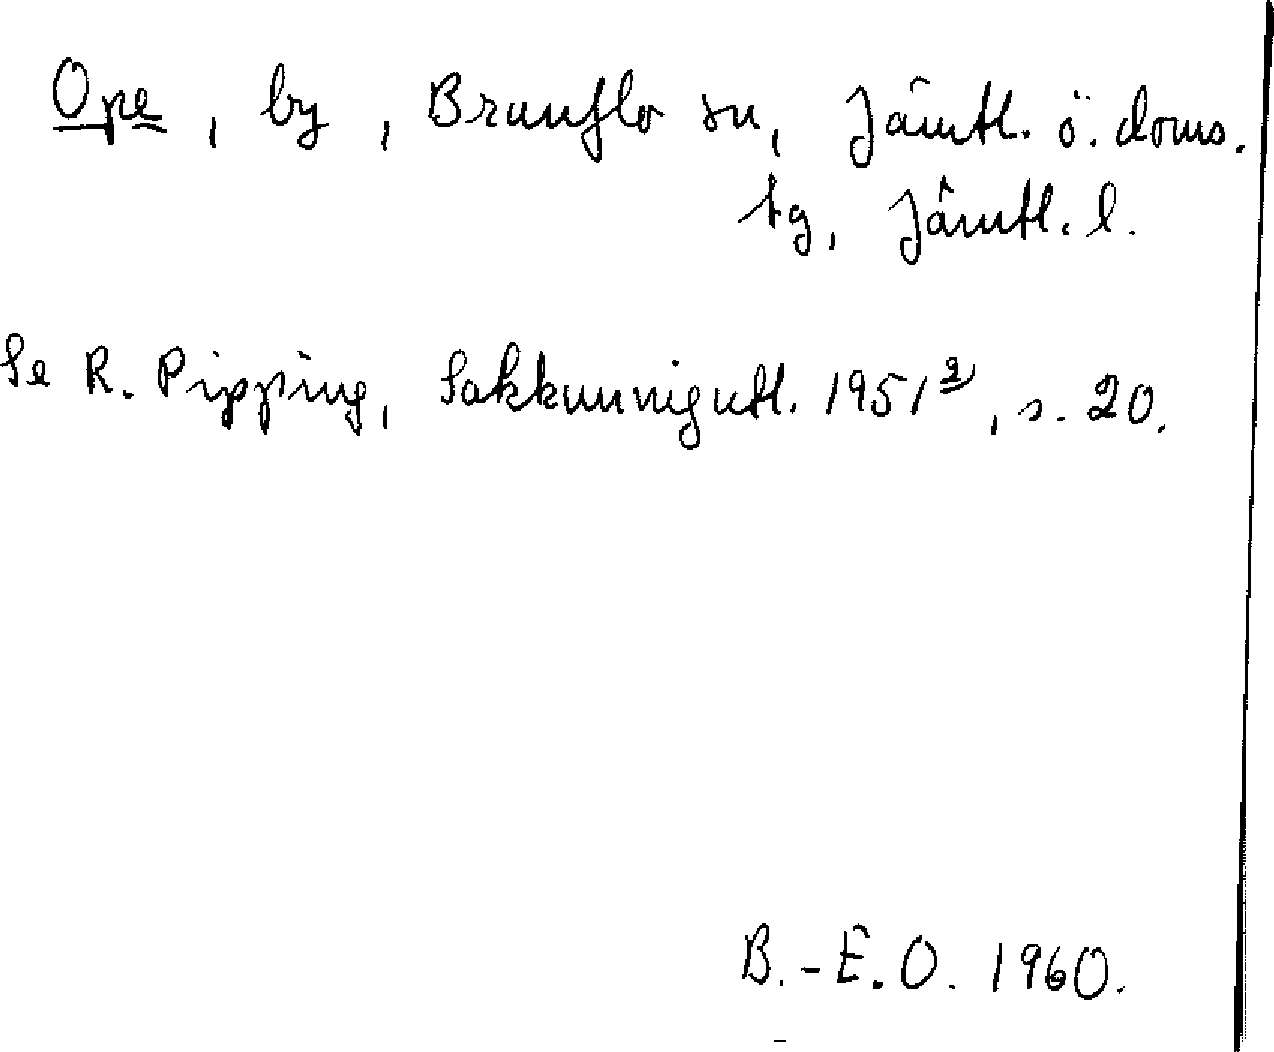 Ope, by, Brunflo sn, Jämtl. ö. doms.
tg, Jämtl. l.
Se R. Pipping, Sakkunnigutl. 1951², s. 20.
B.-E.O. 1960.